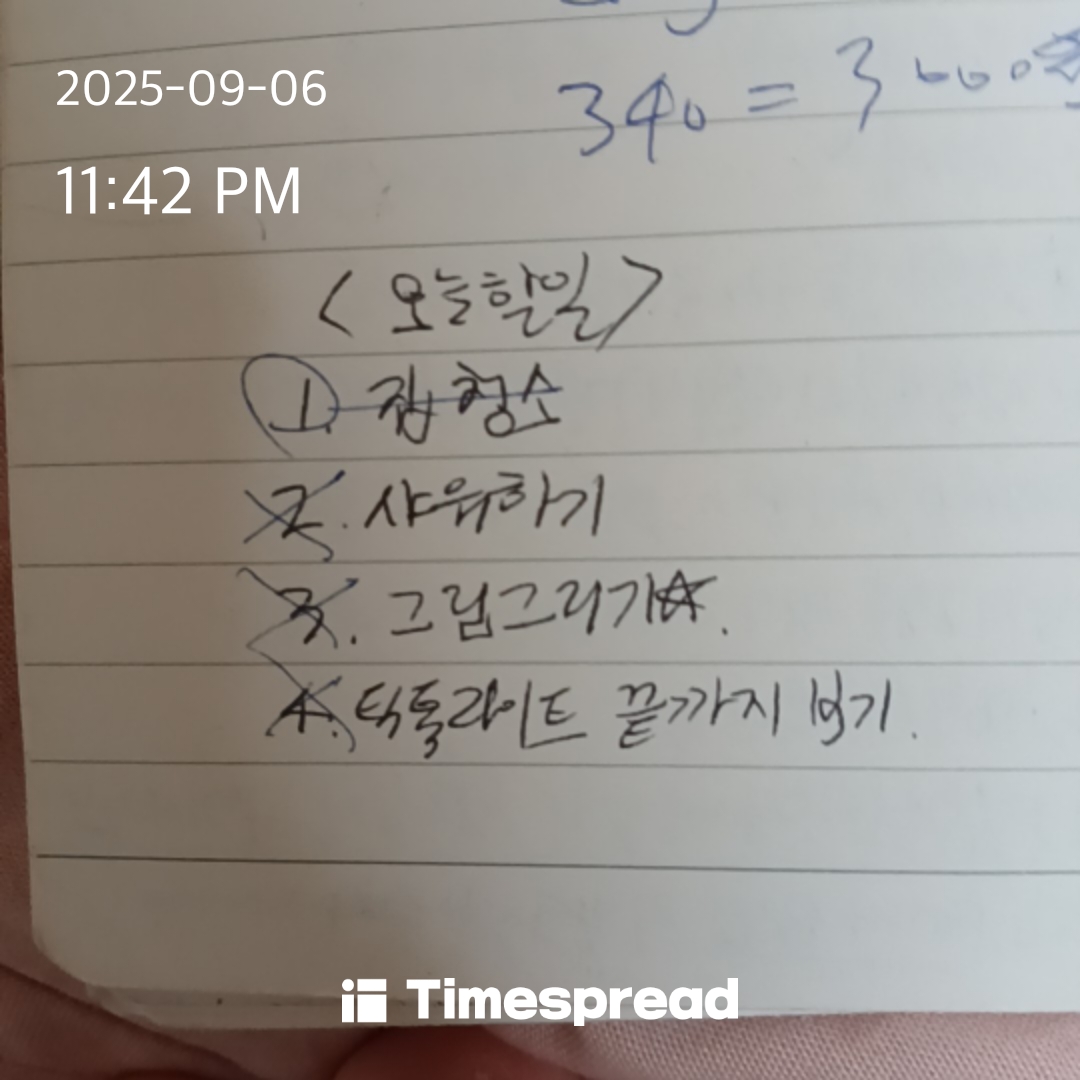 2025-09-06
340 = 3000
11:42 PM
<오늘할일>
1. 집청소
2. 샤워하기
3. 그림그리기☆.
4. 틱톡라이트 끝까지 보기.
Timespread